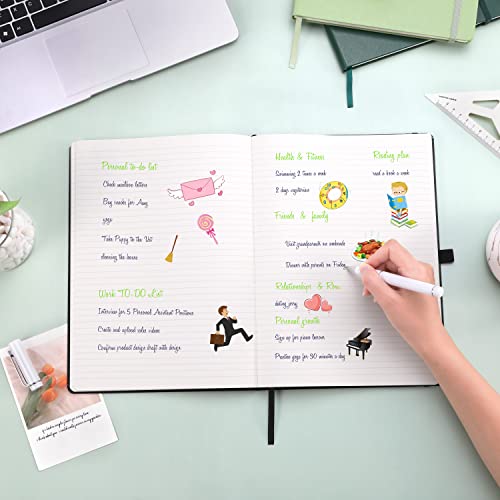 Personal to-do list
Check mailbox letters
Buy snacks for Amy
yoga
Take Puppy to the Vet
cleaning the house
Work TO-DO List
Interview for 5 Personal Assistant Positions
Create and upload sales videos
Confirm product design draft with design
Health & Fitness
Swimming 2 times a week
2 days vegetarian
Reading plan
read a book a week
Friends & family
Visit grandparents on weekends
Dinner with parents on Friday
Relationships & Rom
dating jerry
Personal growth
Sign up for piano lesson
Practice yoga for 30 minutes a day